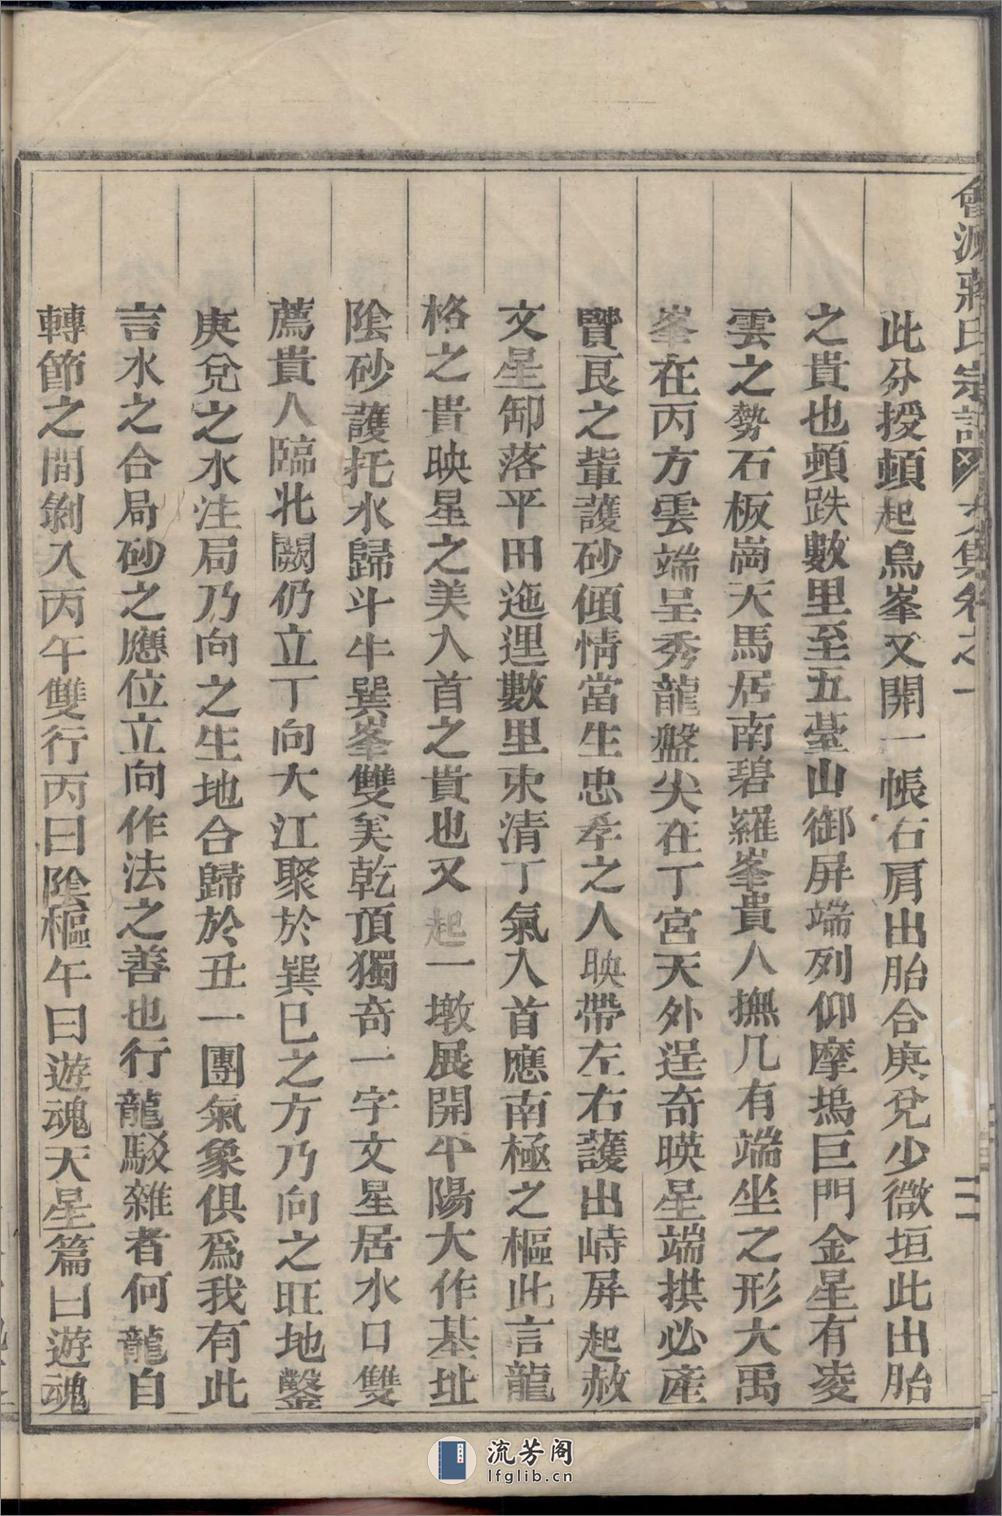 會源蔣氏宗譜
此分授頓起鳥峯又開一帳石肩出胎合庚兌少微垣此出胎
之貴也頓跌數里至五臺山御屏端列仰摩塢巨門金星有凌
雲之勢石板崗天馬居南碧羅峯貴人撫几有端坐之形大禹
峯在丙方雲端呈秀龍盤尖在丁宮天外逞奇暎星端拱必產
賢良之輩護砂傾情當生忠孝之人映帶左右護出峙屏起赦
文星卸落平田迤逦數里束清丁氣入首應南極之樞此言龍
格之貴映星之美入首之貴也又起一墩展開平陽大作基址
陰砂護托水歸斗牛巽峯雙美乾頂獨奇一字文星居水口雙
薦貴人臨北闕仍立丁向大江聚於巽巳之方乃向之旺地鑿
庚兌之水注局乃向之生地合歸於丑一團氣象俱爲我有此
言水之合局砂之應位立向作法之善也行龍駁雜者何龍自
轉節之間剝入丙午雙行丙曰陰樞午曰遊魂天星篇曰遊魂
流芳阁
lfglib.cn